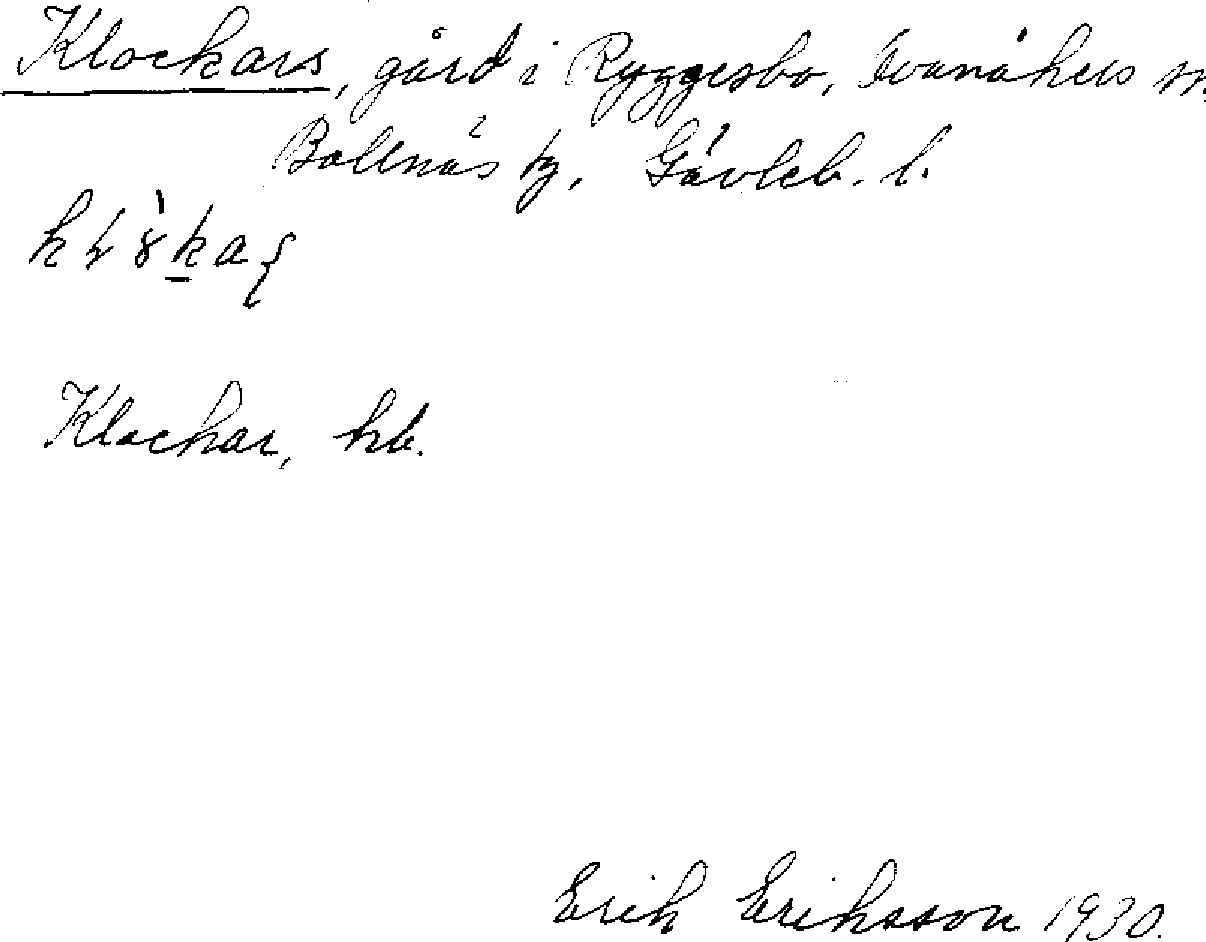 Klockars, gård i Ryggesbo, Svanåhers
Bollnäs tg, Gävleb. l.
Klockar, hb.
Erik Eriksson 1930.